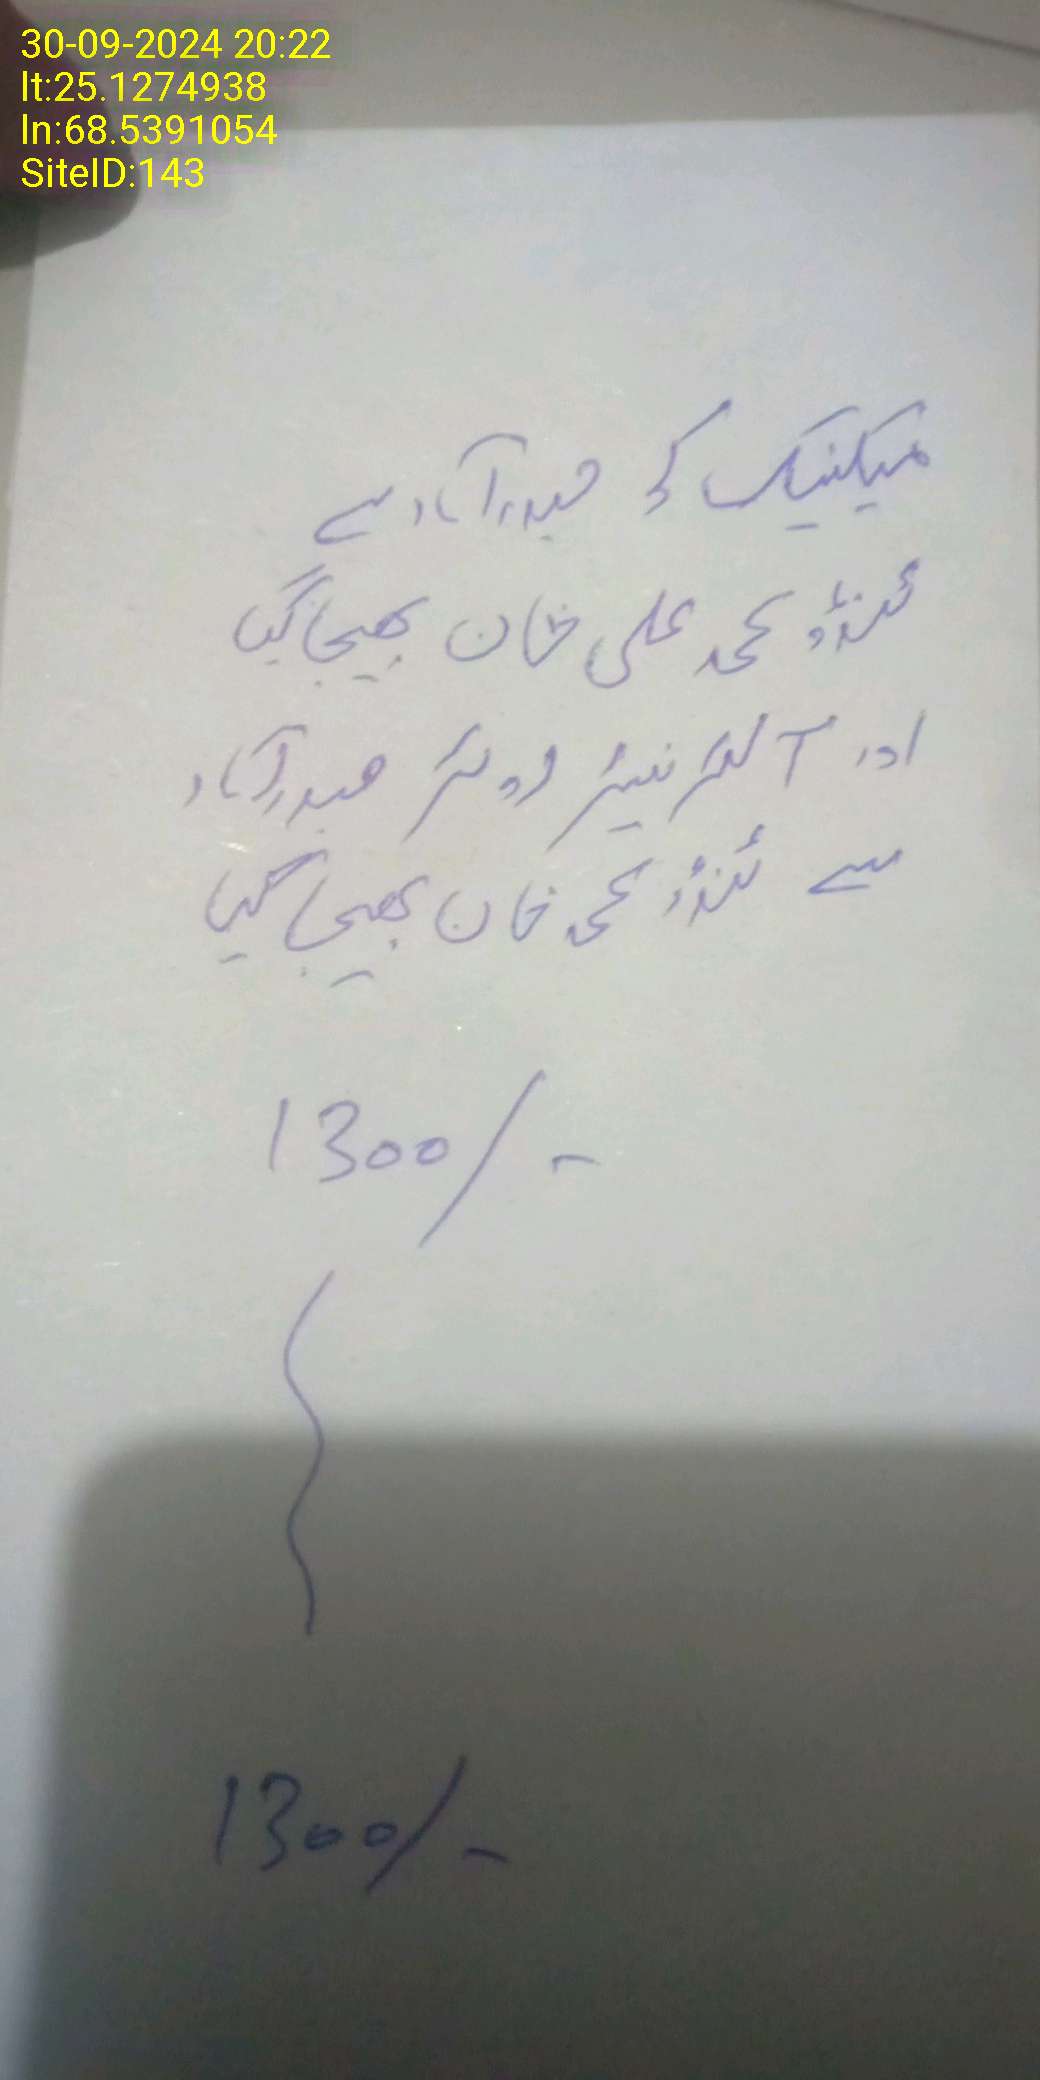 30-09-2024 20:22
lt:25.1274938
ln:68.5391054
SiteID:143
میکنیک کو حیدرآباد سے
ٹنڈو محمد علی خان بھیجا گیا
اور آلٹرنیٹر روٹر حیدرآباد
سے ٹنڈو محمد خان بھیجا گیا
1300/-
1300/-